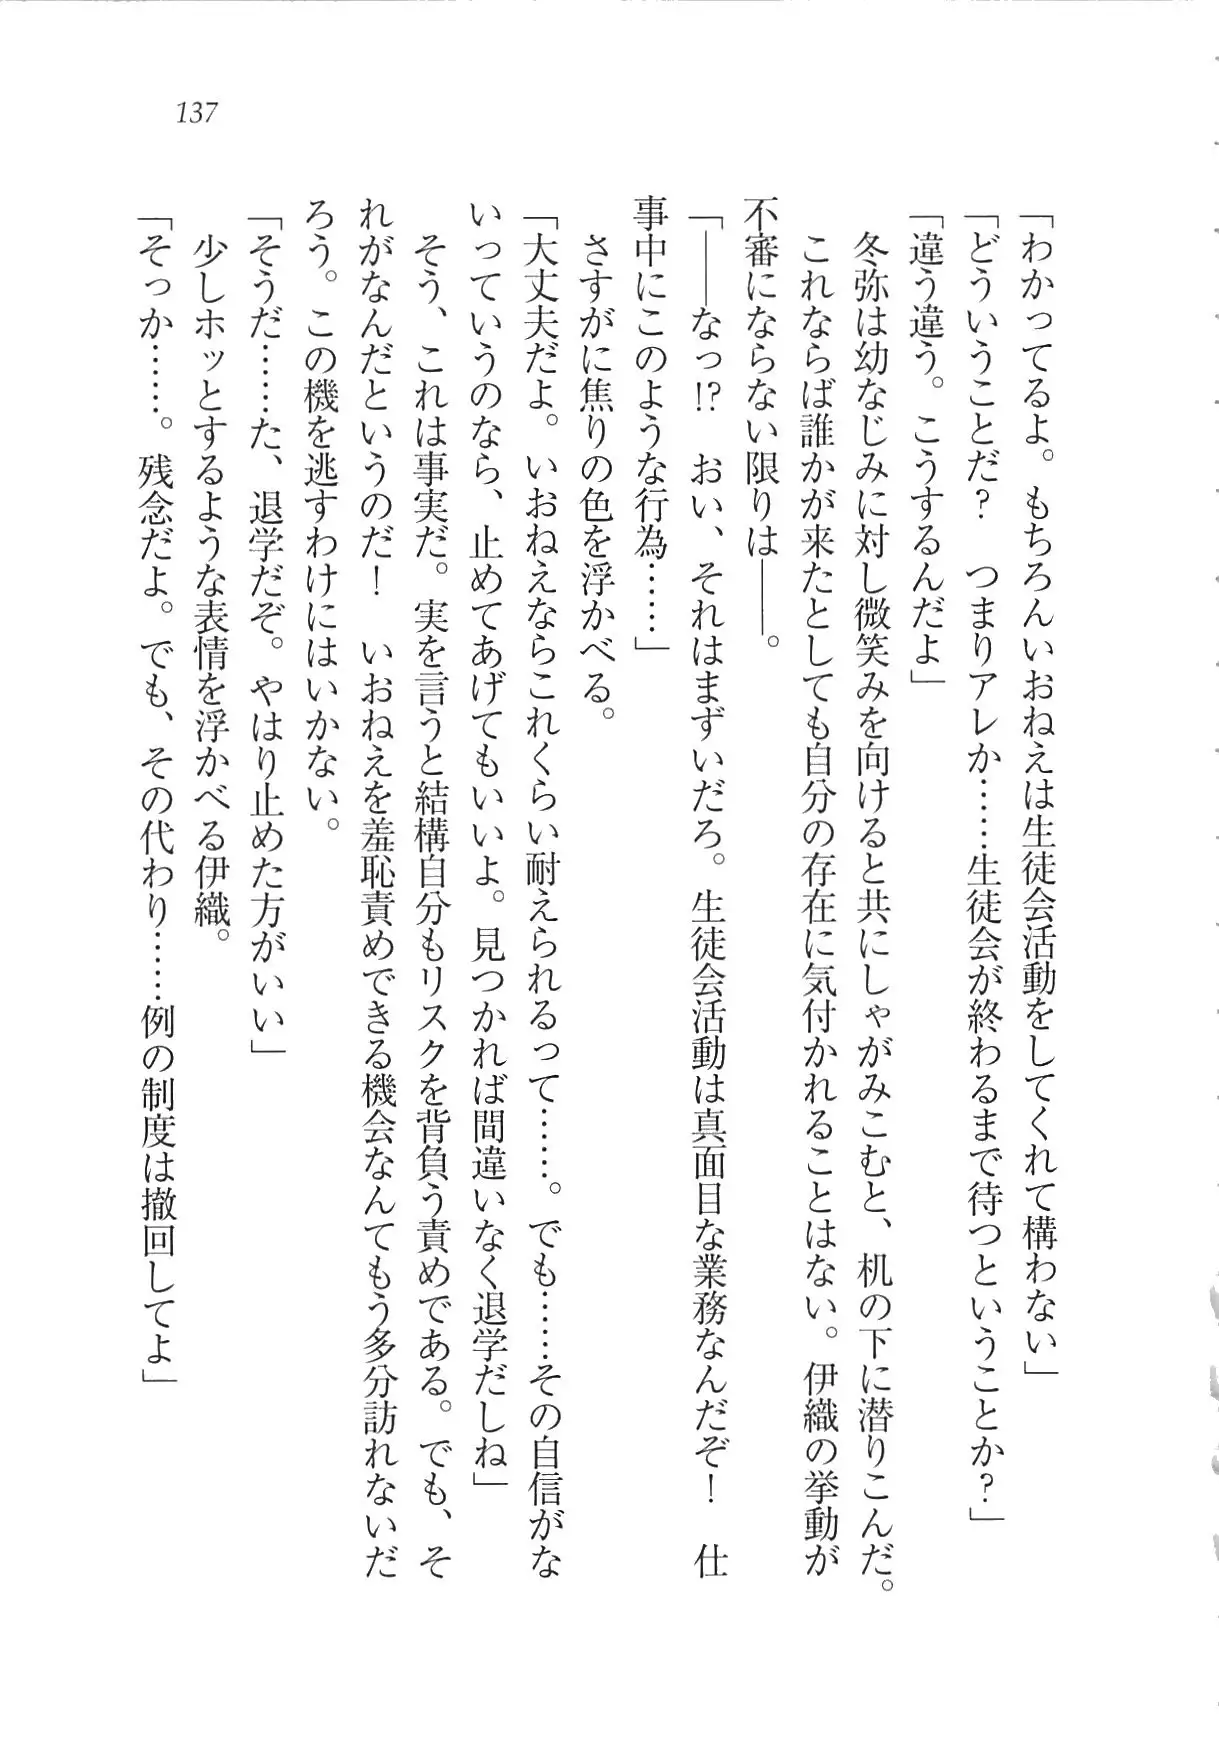 137
「わかってるよ。もちろんいおねえは生徒会活動をしてくれて構わない」
「どういうことだ？　つまりアレか……生徒会が終わるまで待つということか？」
「違う違う。こうするんだよ」
　冬弥は幼なじみに対し微笑みを向けると共にしゃがみこむと、机の下に潜りこんだ。
　これならば誰かが来たとしても自分の存在に気付かれることはない。伊織の挙動が
不審にならない限りは――。
「――なっ!?　おい、それはまずいだろ。生徒会活動は真面目な業務なんだぞ！　仕
事中にこのような行為……」
　さすがに焦りの色を浮かべる。
「大丈夫だよ。いおねえならこれくらい耐えられるって……。でも……その自信がな
いっていうのなら、止めてあげてもいいよ。見つかれば間違いなく退学だしね」
　そう、これは事実だ。実を言うと結構自分もリスクを背負う責めである。でも、そ
れがなんだというのだ！　いおねえを羞恥責めできる機会なんてもう多分訪れないだ
ろう。この機を逃すわけにはいかない。
「そうだ……た、退学だぞ。やはり止めた方がいい」
　少しホッとするような表情を浮かべる伊織。
「そっか……。残念だよ。でも、その代わり……例の制度は撤回してよ」